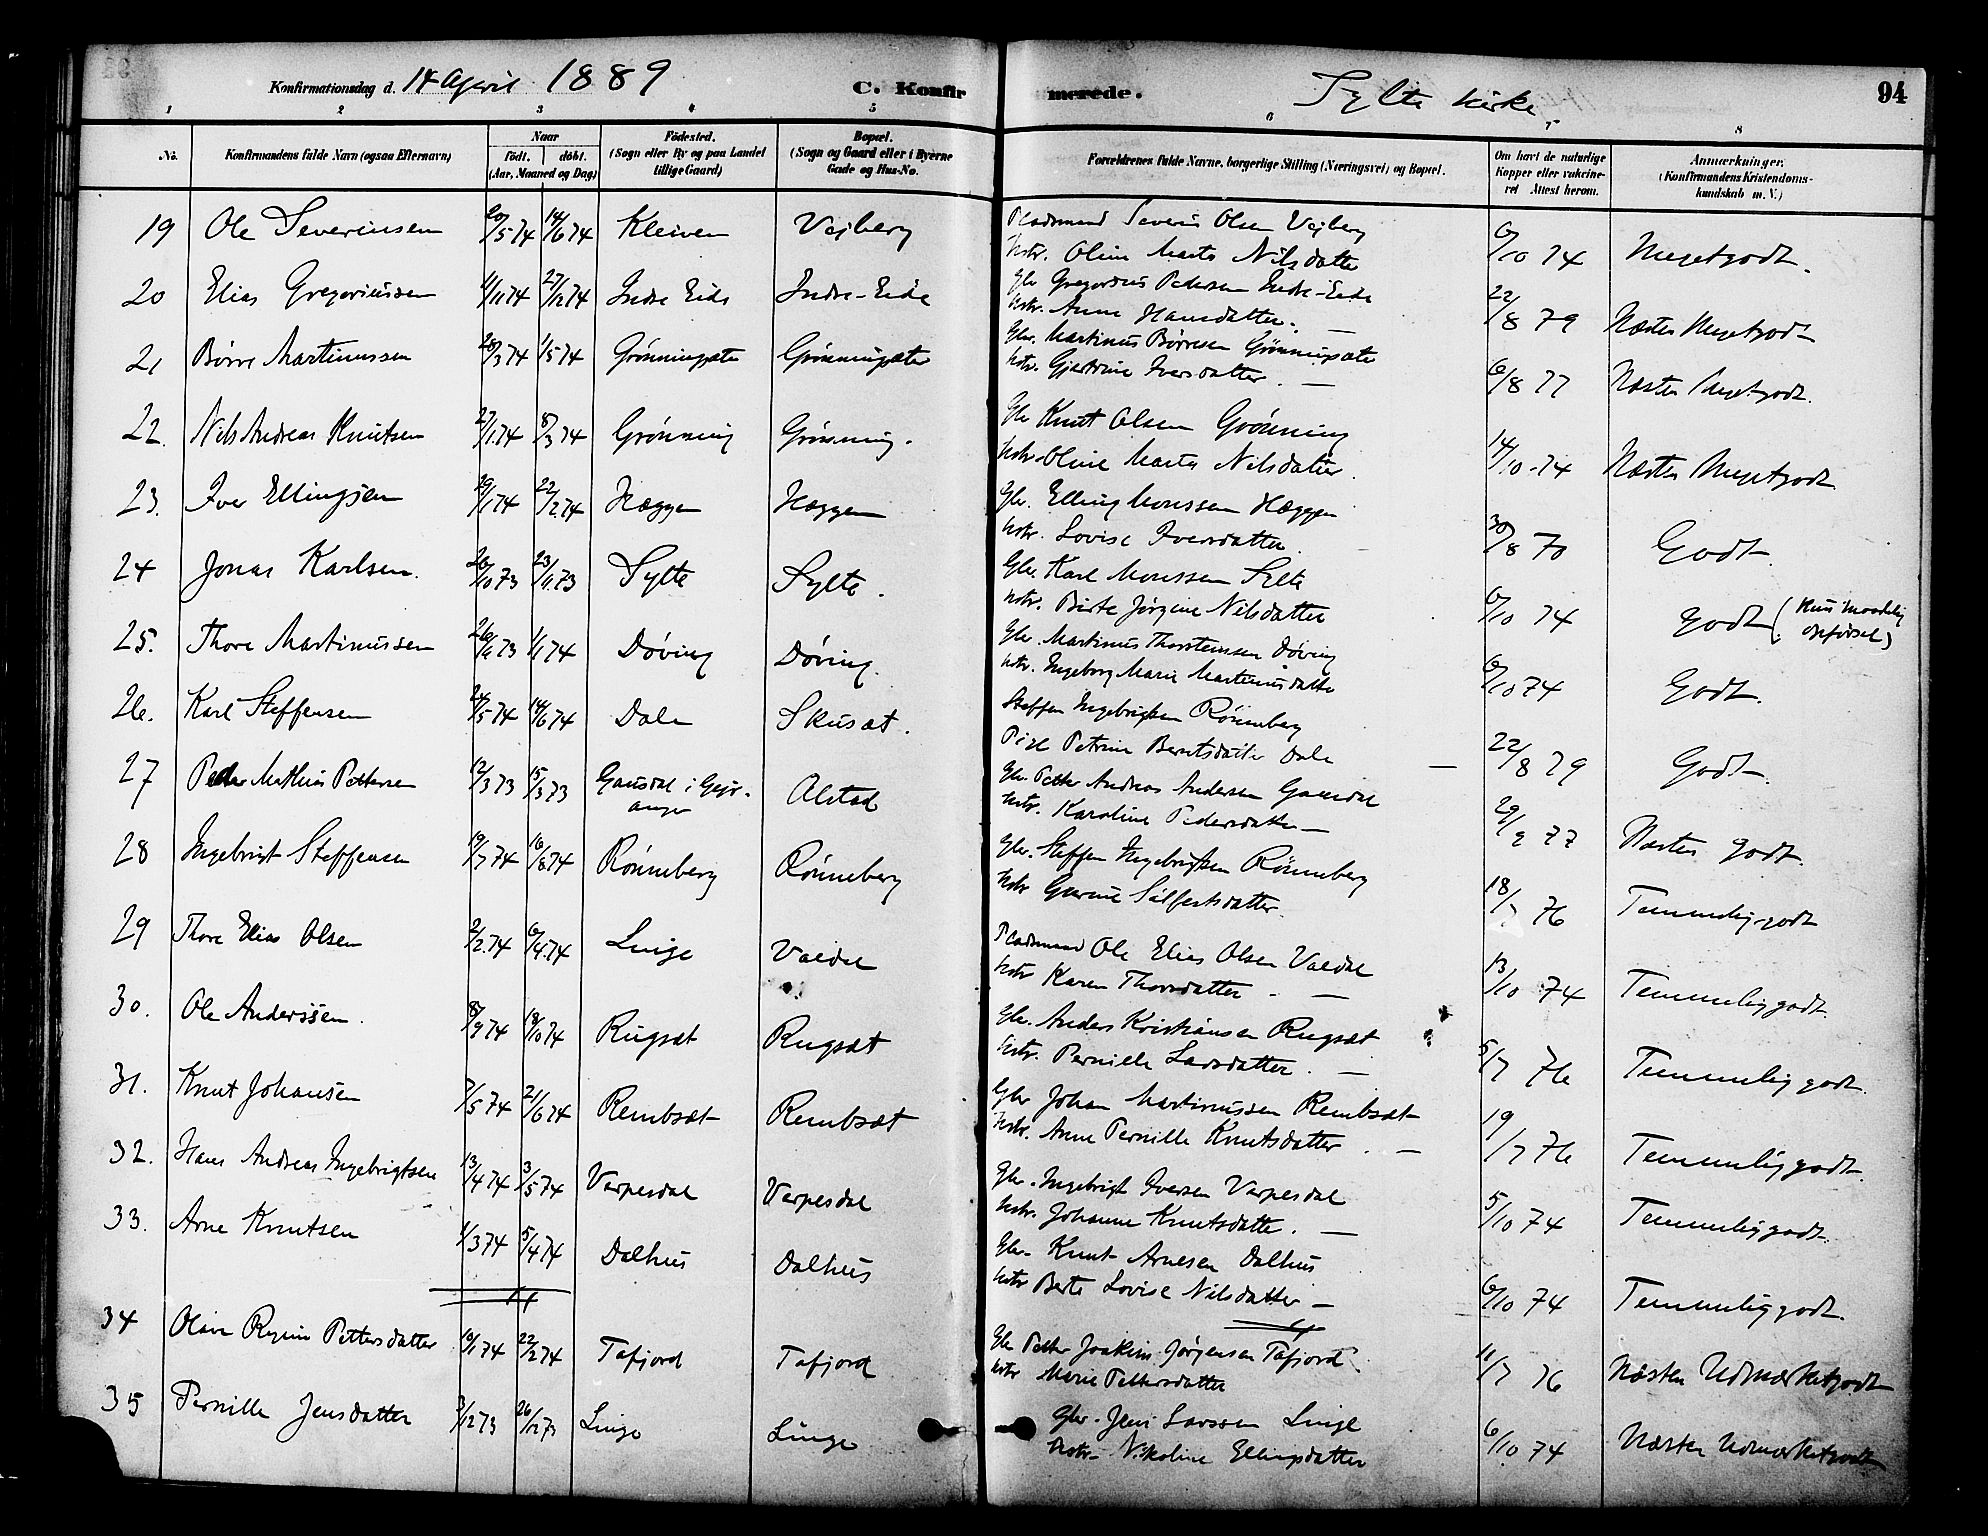 Konfirmationsdag d. 14 April 1889 C. Konfirmerede. Sylte kirke. 94
1 2 3 4 5 6 7 8
No. Konfirmandens fulde Navn (ogsaa Efternavn) Naar født. døbt. (Aar, Maaned og Dag) Fødested. (Sogn eller By og paa Landet tillige Gaard) Bopæl. (Sogn og Gaard eller i Byerne Gade og Hus-No. Forældrenes fulde Navne, borgerlige Stilling (Næringsvei) og Bopæl. Om havt de naturlige Kopper eller vakcineret Attest herom. Anmærkninger. (Konfirmandens Kristendomskundskab m. V.)
19 Ole Severinsen 20/5 74 14/6 74 Kleiven Vejberg Pladsmand Severin Olsen Vejberg
Hstr. Oline Marta Nilsdatter 6/10 74 Megetgodt.
20 Elias Gregoriussen 11/11 74 27/12 74 Indre Eide Indre-Eide Gbr Gregorius Pedersen Indre-Eide
Hstr. Anne Hansdatter. — 22/8 79 Næsten Megetgodt
21 Børre Martinussen 28/3 74 1/5 74 Grønningsæter Grønningsæter Gbr. Martinus Børresen Grønningsæter
Hstr. Gjertrine Iversdatter. — 6/8 77 Næsten Megetgodt.
22. Nils Andreas Knutsen 27/1 74 8/3 74 Grønning Grønning. Gbr Knut Olsen Grønning
Hstr. Oline Marta Nilsdatter. 14/10 - 74 Næsten Megetgodt
23. Iver Ellingsen 19/1 74 22/2 74 Hæggen Hæggen Gbr. Elling Monssen Hæggen
Hstr. Lovise Iversdatter — 30/8 70 Godt.
24 Jonas Karlsen. 26/10 73 23/11 73 Sylte Sylte. Gbr. Karl Monssen Sylte
Hstr. Birte Jørgine Nilsdatter 6/10 74 Godt (Kun maadelig opførsel)
25. Thore Martinussen 26/11 73 1/1 74 Døving Døving. Gbr. Martinus Thorsteinssen Døving
Hstr. Ingeborg Marie Martinusdatter 6/10 74 Godt.
26. Karl Steffensen 24/5 74 14/6 74 Dale Skusæt. Steffen Ingebrigtsen Rønneberg
Pige Petrine Berntsdatter Dale — 22/8 79 Godt.
27 Peder Mathias Pettersen 12/3 73 15/3 73 Gausdal i Gejranger Alstad Gbr. Petter Andreas Andersen Gausdal
Hstr. Karoline Pedersdatter — 29/9 77 Næsten godt.
28 Ingebrigt Steffensen 19/7 74 16/8 74 Rønneberg Rønneberg Gbr. Steffen Ingebrigtsen Rønneberg
Hstr Gurine Silfestsdatter. 18/7 76 Temmelig godt
29 Thore Elias Olsen 2/2 74 6/4 74 Linge Valdal Pladsmand Ole Elias Olsen Valdal
Hstr Karen Thoresdatter. — 13/10 74 Temmelig godt.
30. Ole Anderssen. 8/9 74 18/10 74 Rugsæt Rugsæt Gbr. Anders Kristiansen Rugsæt
Hstr. Pernille Larsdatter. — 5/7 76 Temmelig godt.
31. Knut Johansen 7/5 74 21/6 74 Rembsæt Rembsæt Gbr Johan Martinussen Rembsæt
Hstr. Anne Pernille Knutsdatter. — 19/7 76 Temmelig godt.
32. Hans Andreas Ingebrigtsen 13/4 74 3/5 74 Verpesdal Verpesdal Gbr. Ingebrigt Iversen Verpesdal
Hstr. Johanne Knutsdatter. — 5/10 74 Temmelig godt.
33. Arne Knutsen 1/3 74 5/4 74 Dalhus Dalhus Gbr. Knut Arnesen Dalhus
Hstr Berte Lovise Nilsdatter — 6/10 74 Temmelig godt.
34 Oline Regine Pettersdatter 10/1 74 22/2 74 Tafjord Tafjord Gbr Petter Joakim Jørgensen Tafjord
Hstr Marie Pettersdatter 11/7 76 Næsten Udmærketgodt
35 Pernille Jensdatter 3/12 73 26/12 73 Linge Linge Gbr. Jens Larssen Linge
Hstr. Nikoline Ellingsdatter 6/10 74 Næsten Udmærketgodt